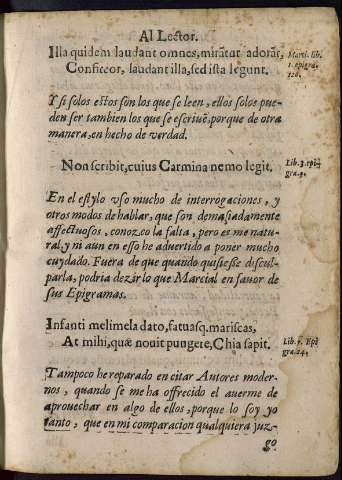 Al Lector.
Illa quidem laudant omnes, mirãtur adorãt,
Confiteor, laudant illa, sed ista legunt.
Marti. lib.
Y si solos estos son los que se leen, ellos solos pue-
den ser tambien los que se escriuẽ, porque de otra
manera, en hecho de verdad.
Non scribit, cuius Carmina nemo legit.
Lib. 3. epi
gra. 9.
En el estylo vso mucho de interrogaciones, y
otros modos de hablar, que son demasiadamente
affectuosos, conozco la falta, pero es me natu-
ral, y ni aun en esso he aduertido a poner mucho
cuydado. Fuera de que quando quisiesse discul-
parla, podria dezir lo que Marcial en fauor de
sus Epigramas.
Infanti melimela dato, fatuasq. mariscas,
At mihi, quæ nouit pungere, Chia sapit.
Lib. 7. Epi
gra. 24.
Tampoco he reparado en citar Autores moder-
nos, quando se me ha offrecido el auerme de
aprouechar en algo de ellos, porque lo soy yo
tanto, que en mi comparacion qualquiera juz-
go